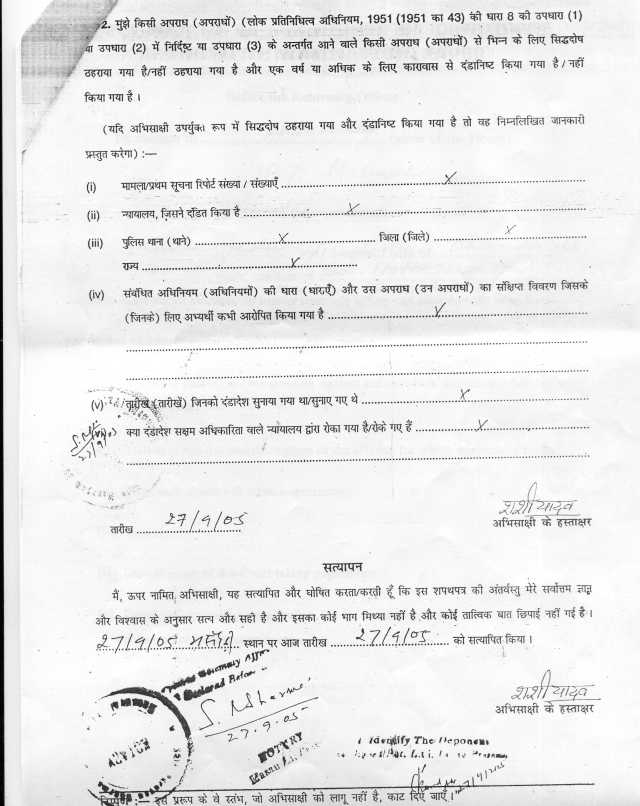 2. मुझे किसी अपराध (अपराधों) (लोक प्रतिनिधित्व अधिनियम, 1951 (1951 का 43) की धारा 8 की उपधारा (1)
या उपधारा (2) में निर्दिष्ट या उपधारा (3) के अन्तर्गत आने वाले किसी अपराध (अपराधों) से भिन्न के लिए सिद्धदोष
ठहराया गया है/नहीं ठहराया गया है और एक वर्ष या अधिक के लिए कारावास से दंडानिष्ट किया गया है / नहीं
किया गया है ।
(यदि अभिसाक्षी उपर्युक्त रूप में सिद्धदोष ठहराया गया और दंडानिष्ट किया गया है तो वह निम्नलिखित जानकारी
प्रस्तुत करेगा) :—
(i) मामला/प्रथम सूचना रिपोर्ट संख्या / संख्याएँ ........ X
(ii) न्यायालय, जिसने दंडित किया है ........ X
(iii) पुलिस थाना (थाने) ........ X ........ जिला (जिले) ........ X
राज्य ........ X
(iv) संबंधित अधिनियम (अधिनियमों) की धारा (धाराएँ) और उस अपराध (उन अपराधों) का संक्षिप्त विवरण जिसके
(जिनके) लिए अभ्यर्थी कभी आरोपित किया गया है ........ X
(v) तारीख (तारीखें) जिनको दंडादेश सुनाया गया था/सुनाए गए थे ........ X
क्या दंडादेश सक्षम अधिकारिता वाले न्यायालय द्वारा रोका गया है/रोके गए हैं ........ X
27/9/
शशी यादव
तारीख 27/9/05
अभिसाक्षी के हस्ताक्षर
सत्यापन
मैं, ऊपर नामित अभिसाक्षी, यह सत्यापित और घोषित करता/करती हूँ कि इस शपथपत्र की अंतर्वस्तु मेरे सर्वोत्तम ज्ञान
और विश्वास के अनुसार सत्य और सही है और इसका कोई भाग मिथ्या नहीं है और कोई तात्विक बात छिपाई नहीं गई है ।
27/9/05 स्थान पर आज तारीख 27/9/05 को सत्यापित किया ।
शशी यादव
अभिसाक्षी के हस्ताक्षर
S. N Sharma
27.9.05
NOTARY
I Identify The Deponent
:— इस प्ररूप के वे स्तंभ, जो अभिसाक्षी को लागू नहीं है, काट दिए जाएँ ।